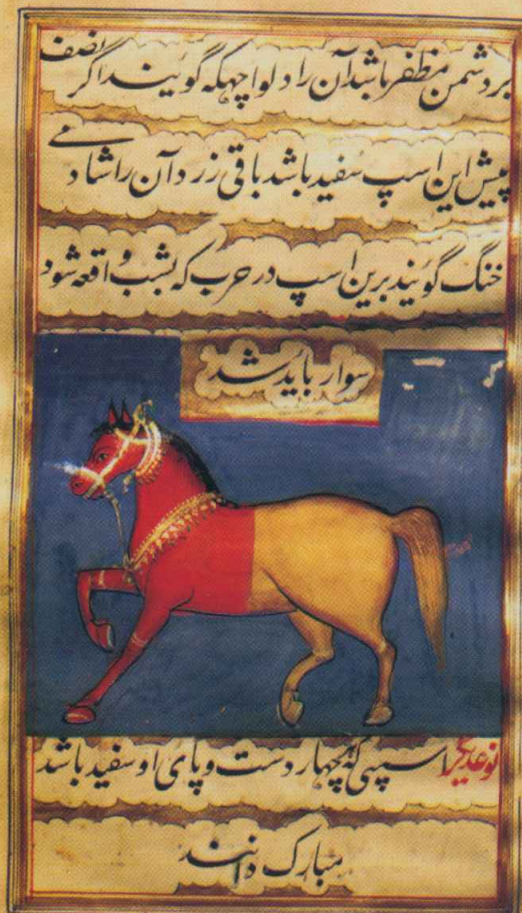 بر دشمن مظفر باشد آن را دلواچهکه گویند اگر نصف
پیش این اسپ سفید باشد باقی زرد آن را شادمے
خنگ گویند برین اسپ در حرب که بشب واقعه شود
سوار باید شد
نوعدیگر اسپی که چهار دست و پائ او سفید باشد
مبارک دانند